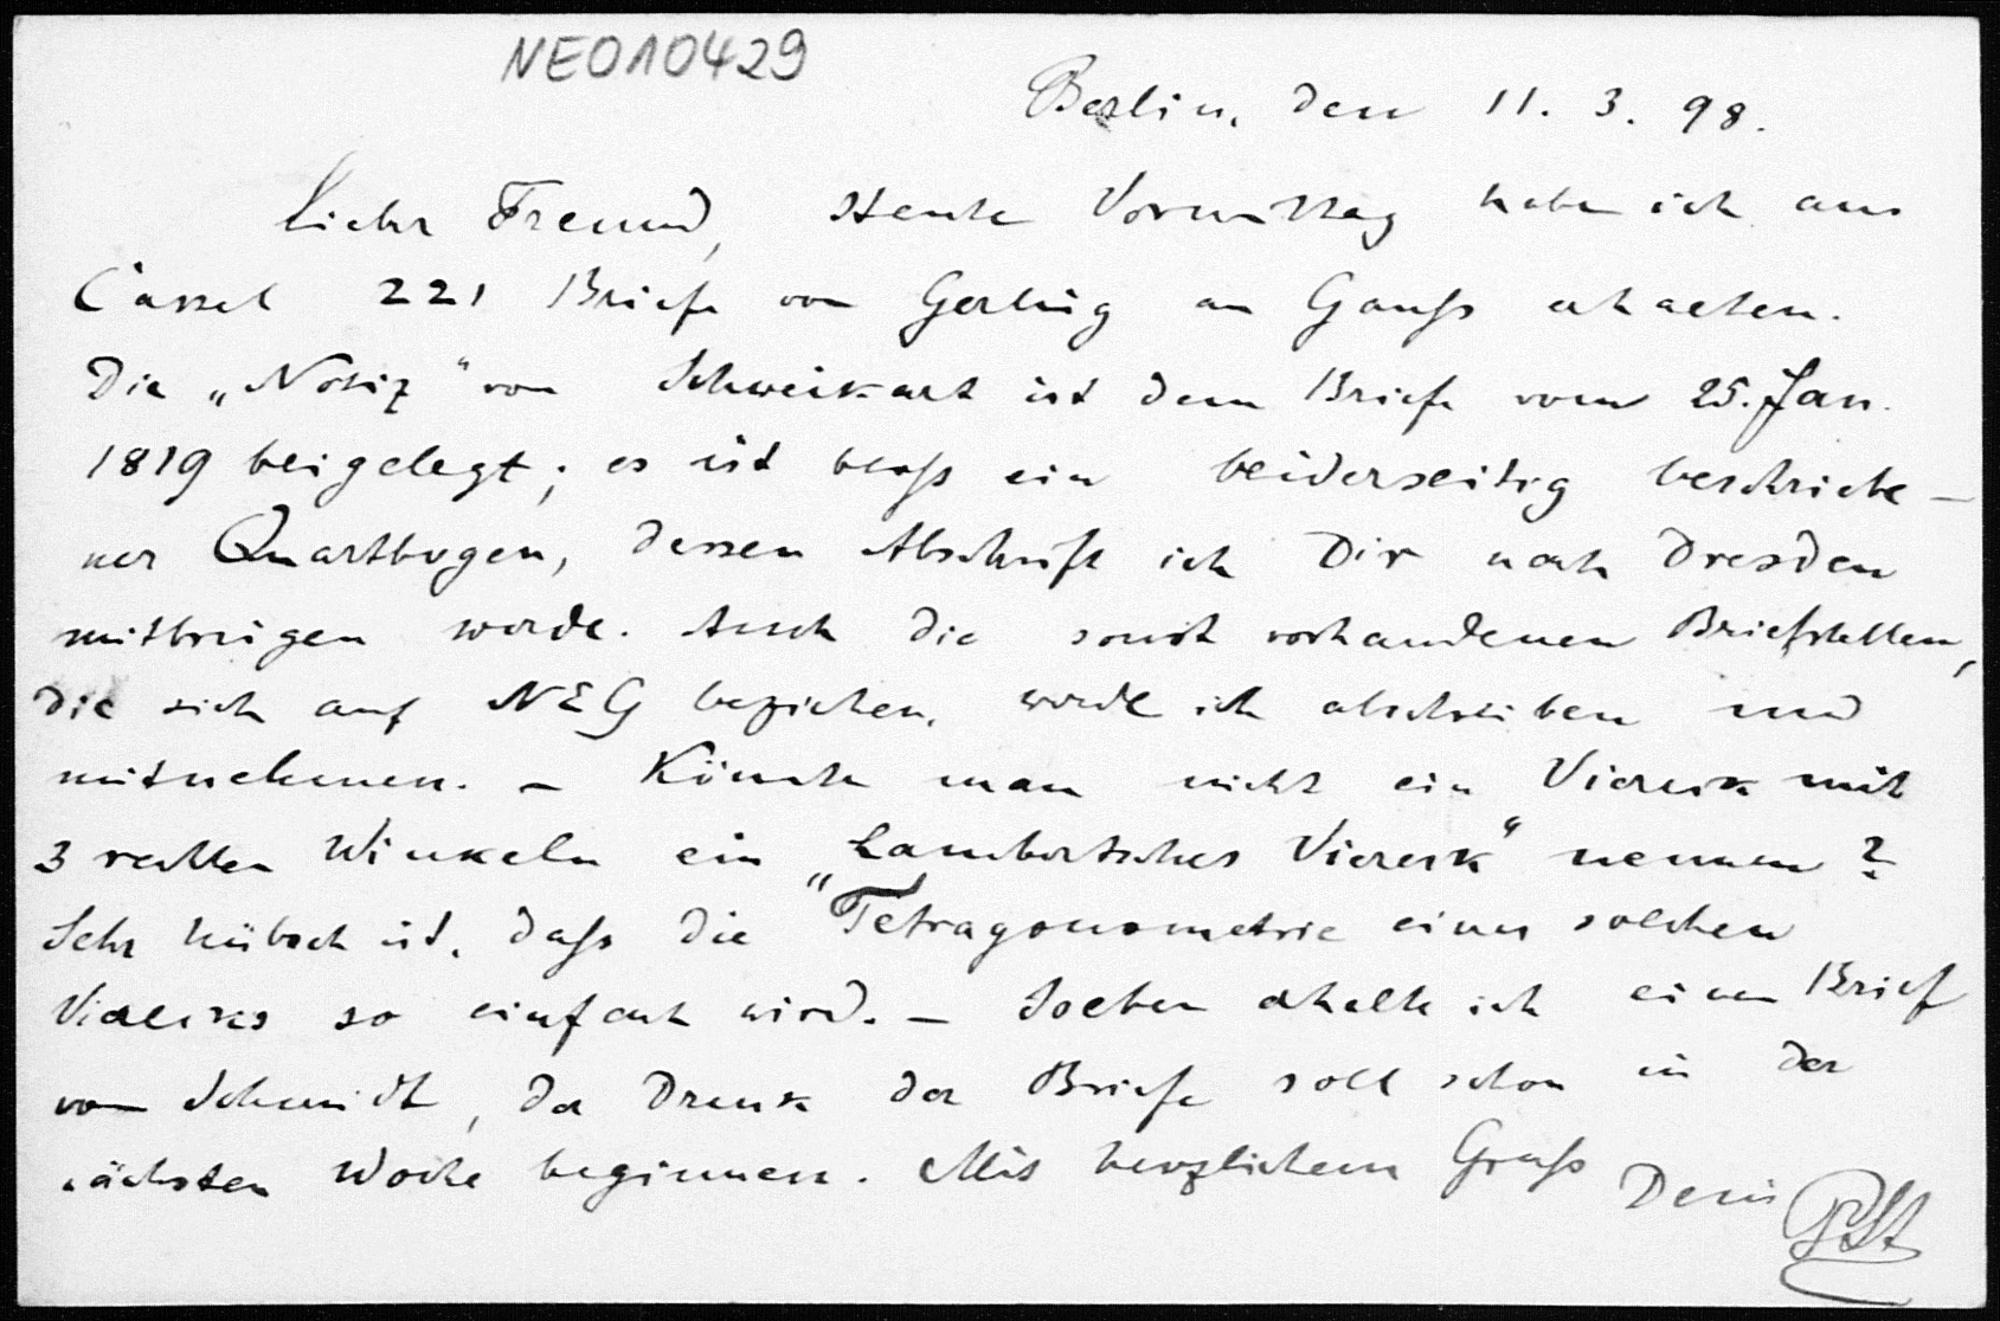 NE010429
Berlin, den 11. 3. 98.
Lieber Freund, Heute Vormittag habe ich aus
Cassel 221 Briefe von Gerling an Gauß erhalten.
Die „Notiz“ von Schweikart ist dem Briefe vom 25. Jan.
1819 beigelegt; es ist bloß ein beiderseitig beschriebe-
ner Quartbogen, dessen Abschrift ich Dir nach Dresden
mitbringen werde. Auch die sonst vorhandenen Briefstellen,
die sich auf NEG beziehen, werde ich abschreiben und
mitnehmen. – Könnte man nicht ein Viereck mit
3 rechten Winkeln ein „Lambertsches Viereck“ nennen?
Sehr hübsch ist, daß die Tetragonometrie eines solchen
Vierecks so einfach wird. – Soeben erhalte ich einen Brief
von Schmidt, der Druck der Briefe soll schon in der
nächsten Woche beginnen. Mit herzlichem Gruß Dein PSt